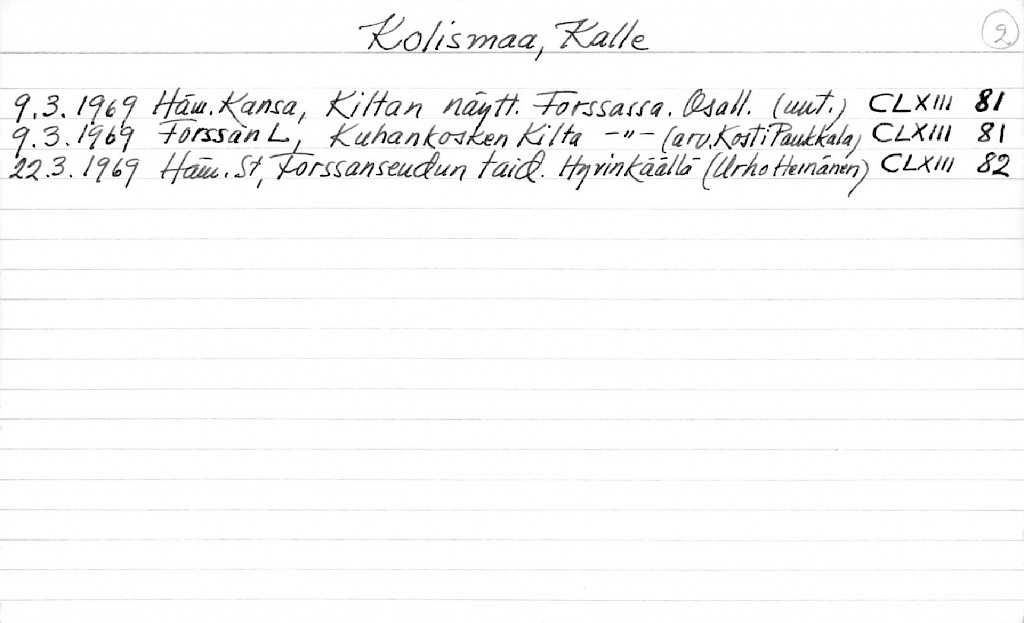 Kolismaa, Kalle
2
9.3.1969 Häm. Kansa, Killan näytt. Forssassa. Osall. (uut.) CLXIII 81
9.3.1969 Forssan L, Kuhankosken Kilta -"- (arv. Kosti Paukkala) CLXIII 81
22.3.1969 Häm. St, Forssanseudun taid. Hyvinkäällä (Urho Heinänen) CLXIII 82